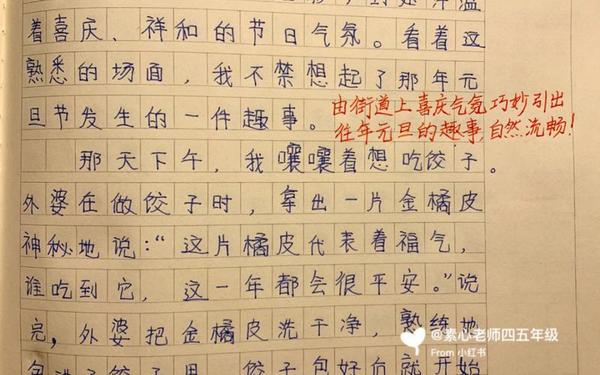 着喜庆、祥和的节日气氛。看着这
熟悉的场面，我不禁想起了那年元
旦节发生的一件趣事。
由街道上喜庆气氛巧妙引出
往年元旦的趣事,自然流畅!
那天下午，我嚷嚷着想吃饺子。
外婆在做饺子时，拿出一片金橘皮
神秘地说：“这片橘皮代表着福气，
谁吃到它，这一年都会很平安。”说
完，外婆把金橘皮洗干净，熟练地
包进了饺子里。饺子包好后就开始
@素心老师四五年级
From 小红书